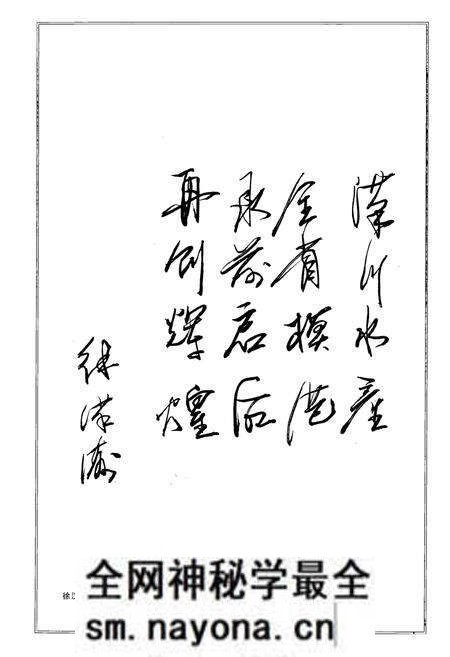 漢川水産
全省模范
承前启后
再创辉煌
徐漢
徐
全网神秘学最全
sm.nayona.cn